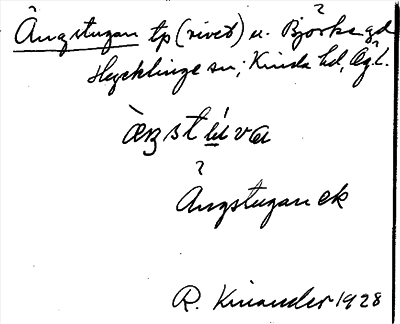 Ängstugan tp (rivet) u. Björka gd
Hycklinge sn; Kinda hd, Ög.l.
?
Ängstugan ek
R. Kinander 1928